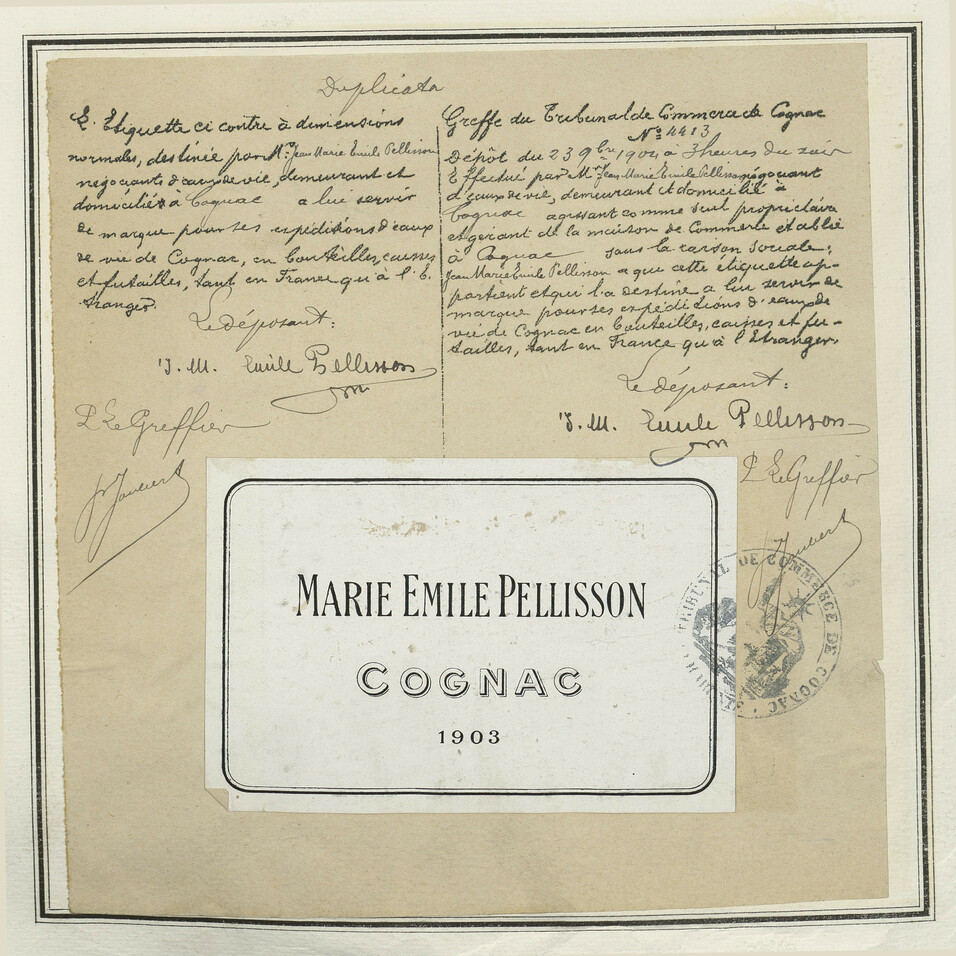 Duplicata
L'Etiquette ci contre à dimensions
normales, destinée par Mr Jean Marie Emile Pellisson
négociants d'eaux de vie, demeurant et
domiciliés à Cognac a lui servir
de marque pour ses expéditions d'eaux
de vie de Cognac, en bouteilles, caisses
et futailles, tant en France qu'à l'E
tranger.
Le déposant:
J. M. Emile Pellisson
P. Le Greffier
Joubert
Greffe du Tribunal de Commerce de Cognac
No 4413
Dépôt du 23 9bre 1904 à 3 heures du soir
Effectué par Mr Jean Marie Emile Pellisson négociant
d'eaux de vie, demeurant et domicilié à
Cognac agissant comme seul propriétaire
et gérant de la maison de Commerce établie
à Cognac sous la raison sociale:
Jean Marie Emile Pellisson a que cette étiquette ap-
partient et qui l'a destiné a lui servir de
marque pour ses expéditions d'eaux de
vie de Cognac en bouteilles, caisses et fu-
tailles, tant en France qu'à l'Etranger.
Le déposant:
J. M. Emile Pellisson
P. Le Greffier
Joubert
TRIBUNAL DE COMMERCE DE COGNAC
MARIE EMILE PELLISSON
COGNAC
1903